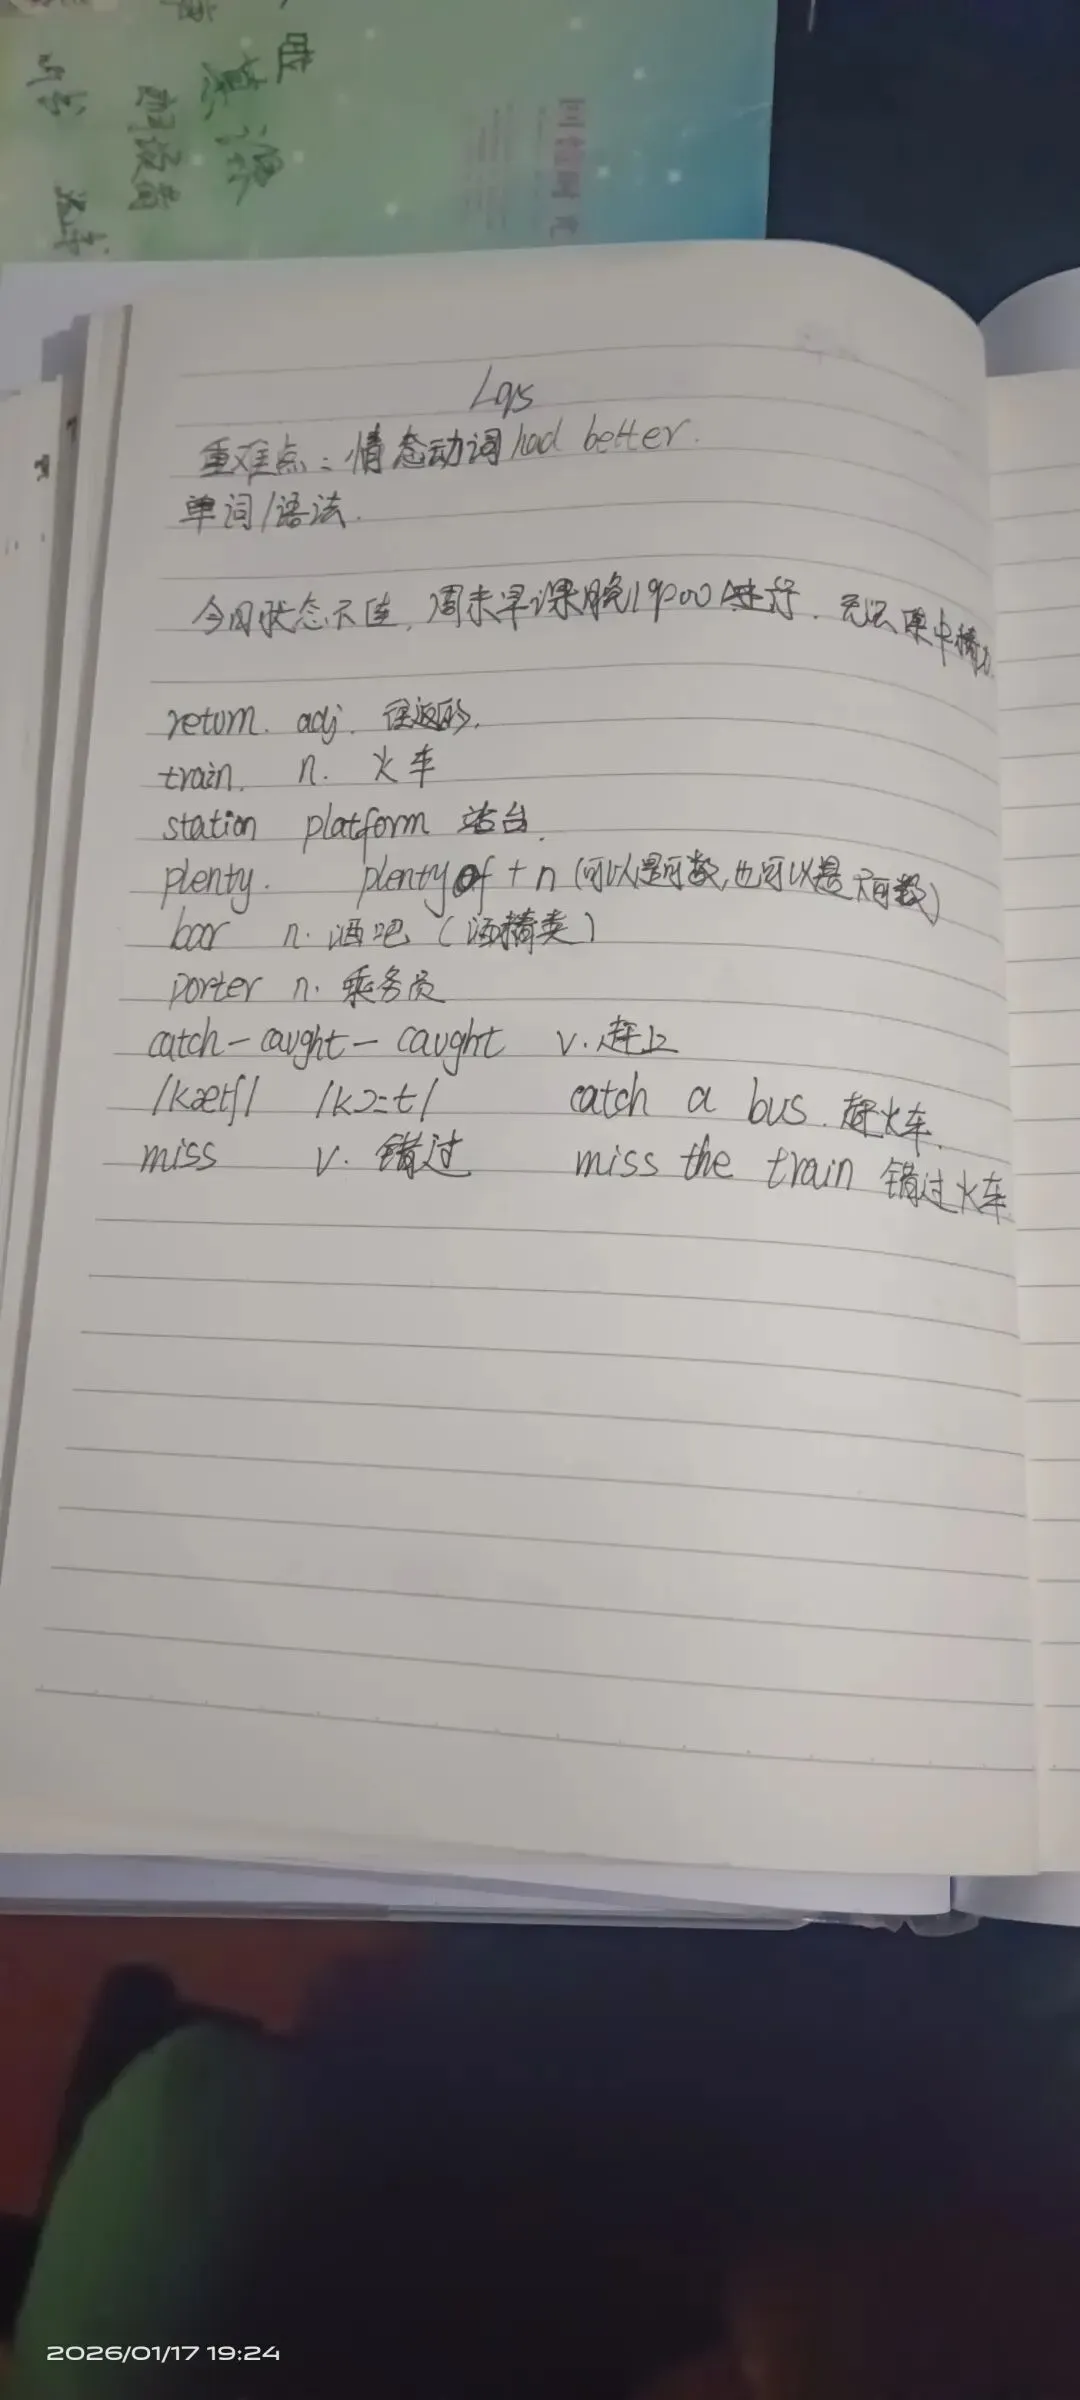 L95
重难点：情态动词 had better.
单词/语法.
今日状态不佳, 周末早课晚19:00进行. 无法集中精力.
return. adj. 往返的.
train. n. 火车
station platform 站台.
plenty. plenty of + n (可以是可数,也可以是不可数)
bar n. 酒吧 (酒精类)
porter n. 乘务员
catch - caught - caught v. 赶上
/kætʃ/ /kɔ:t/ catch a bus. 赶火车.
miss v. 错过 miss the train 错过火车
2026/01/17 19:24